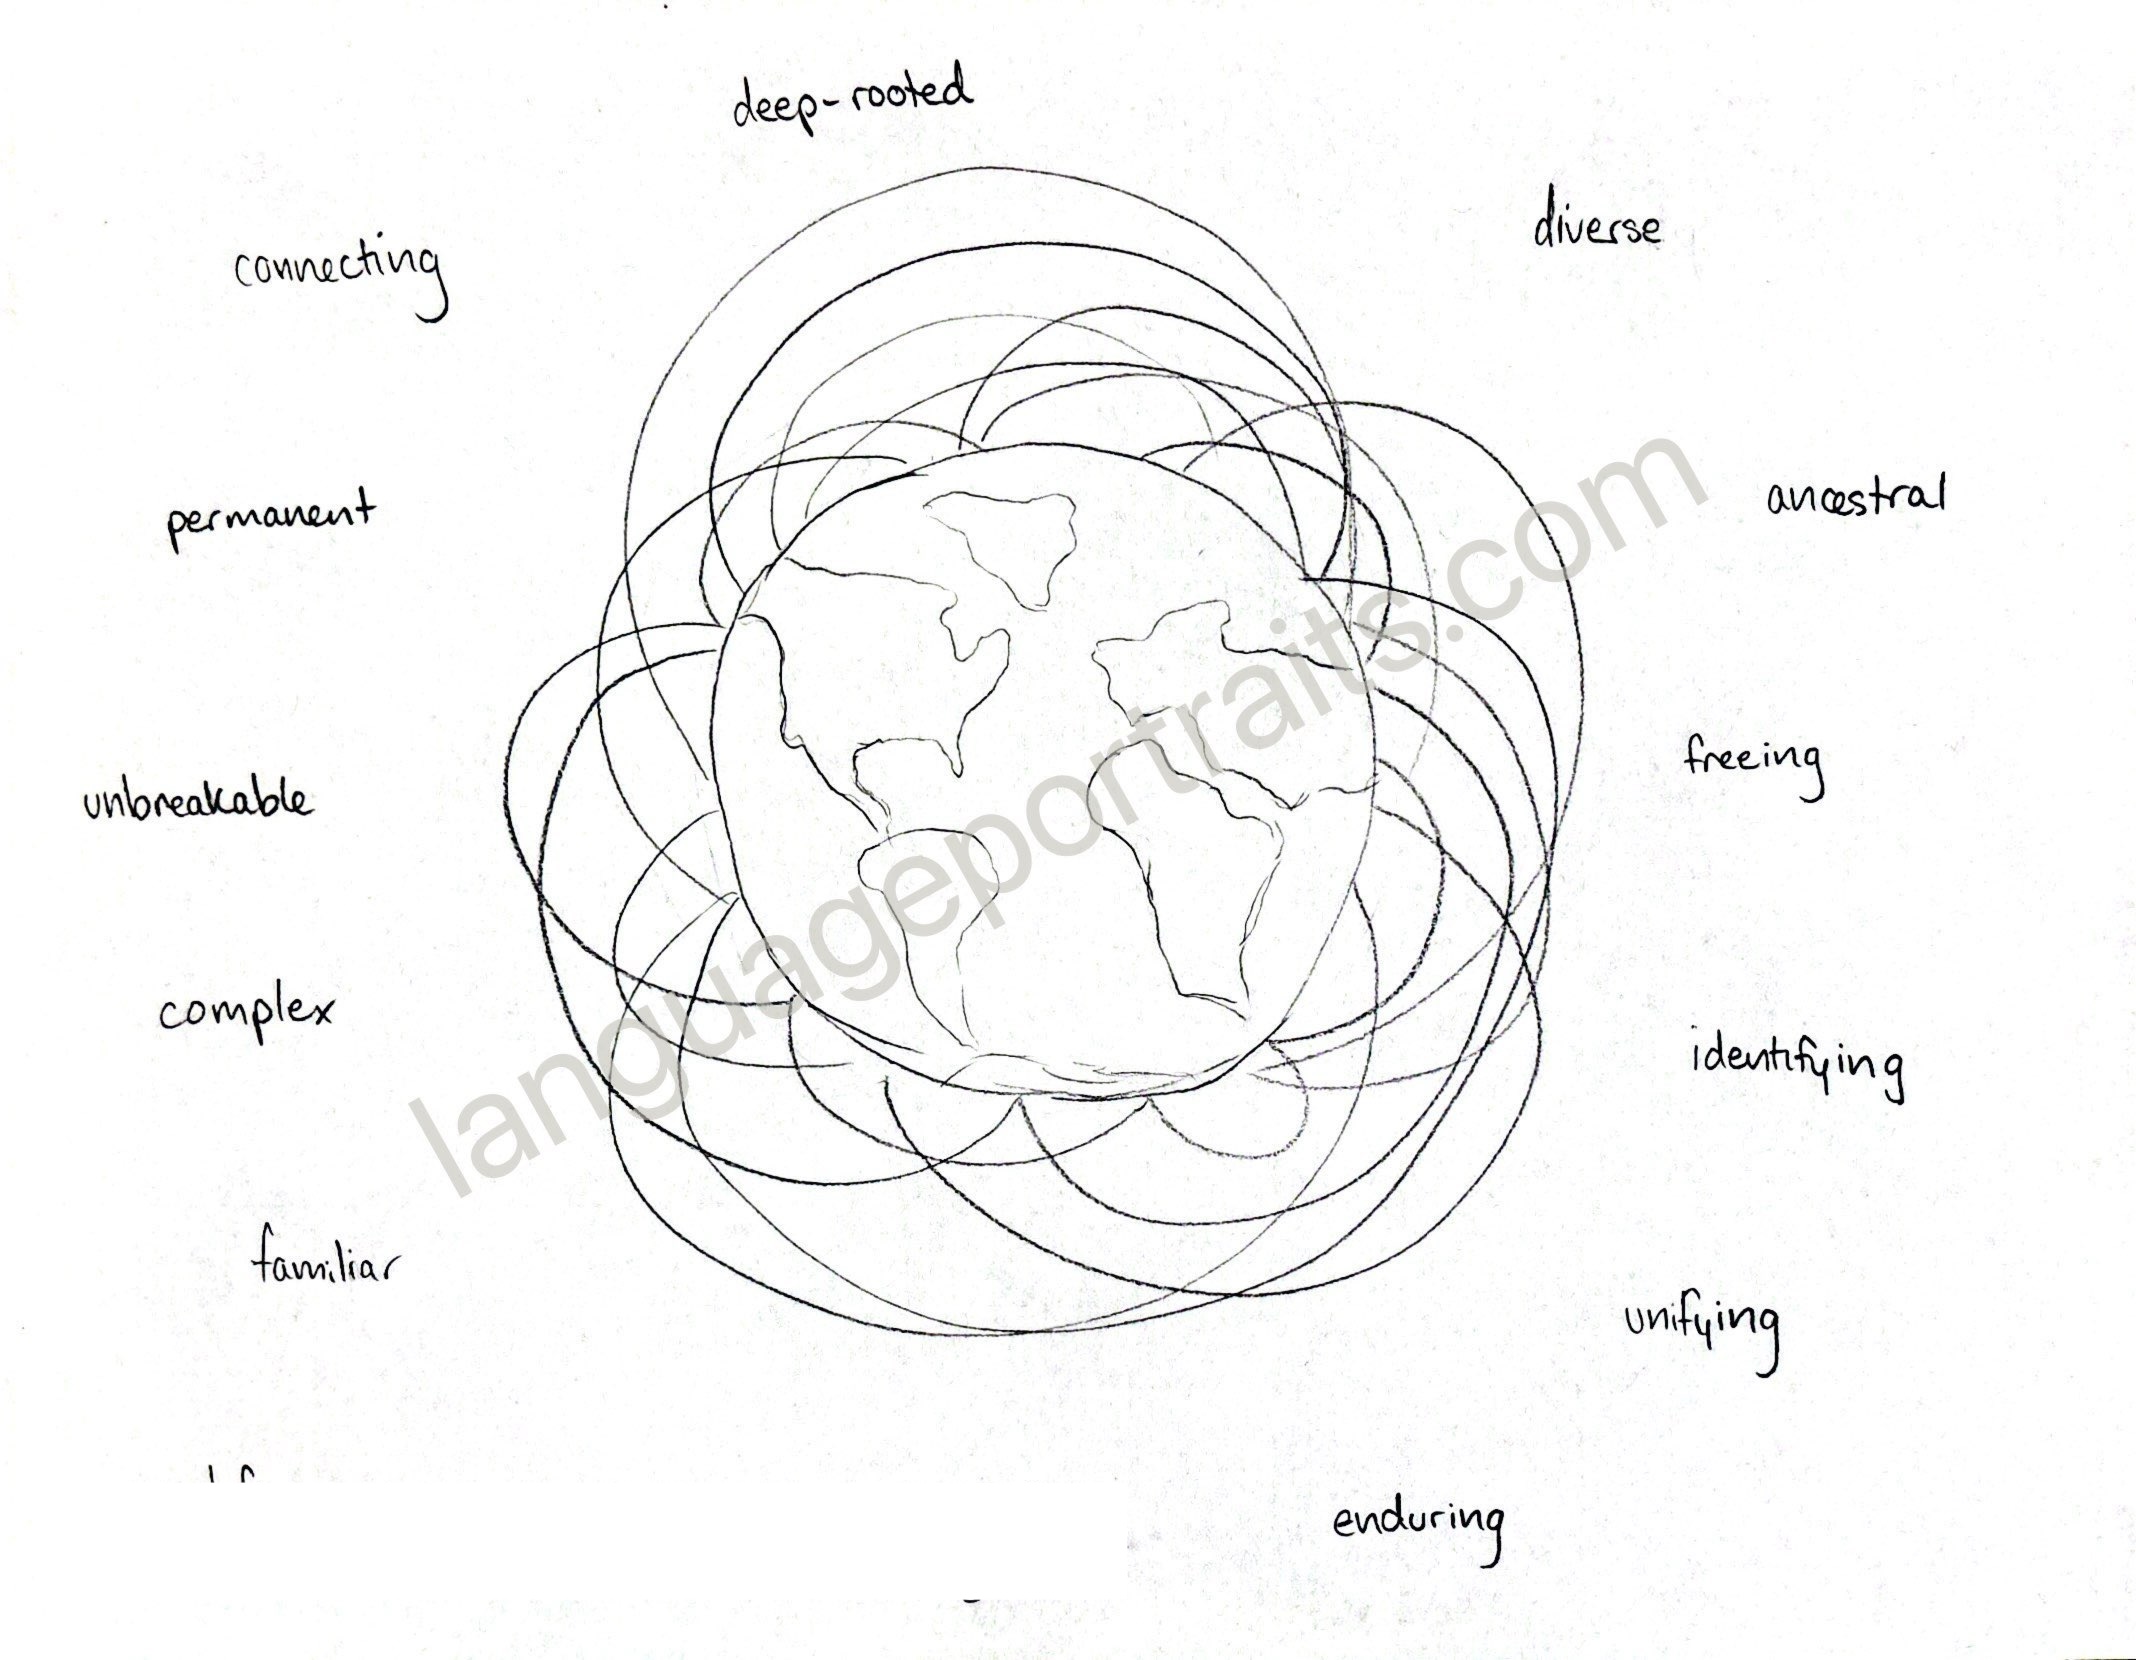 deep-rooted
diverse
connecting
ancestral
permanent
freeing
unbreakable
complex
identifying
familiar
unifying
enduring
languageportraits.com